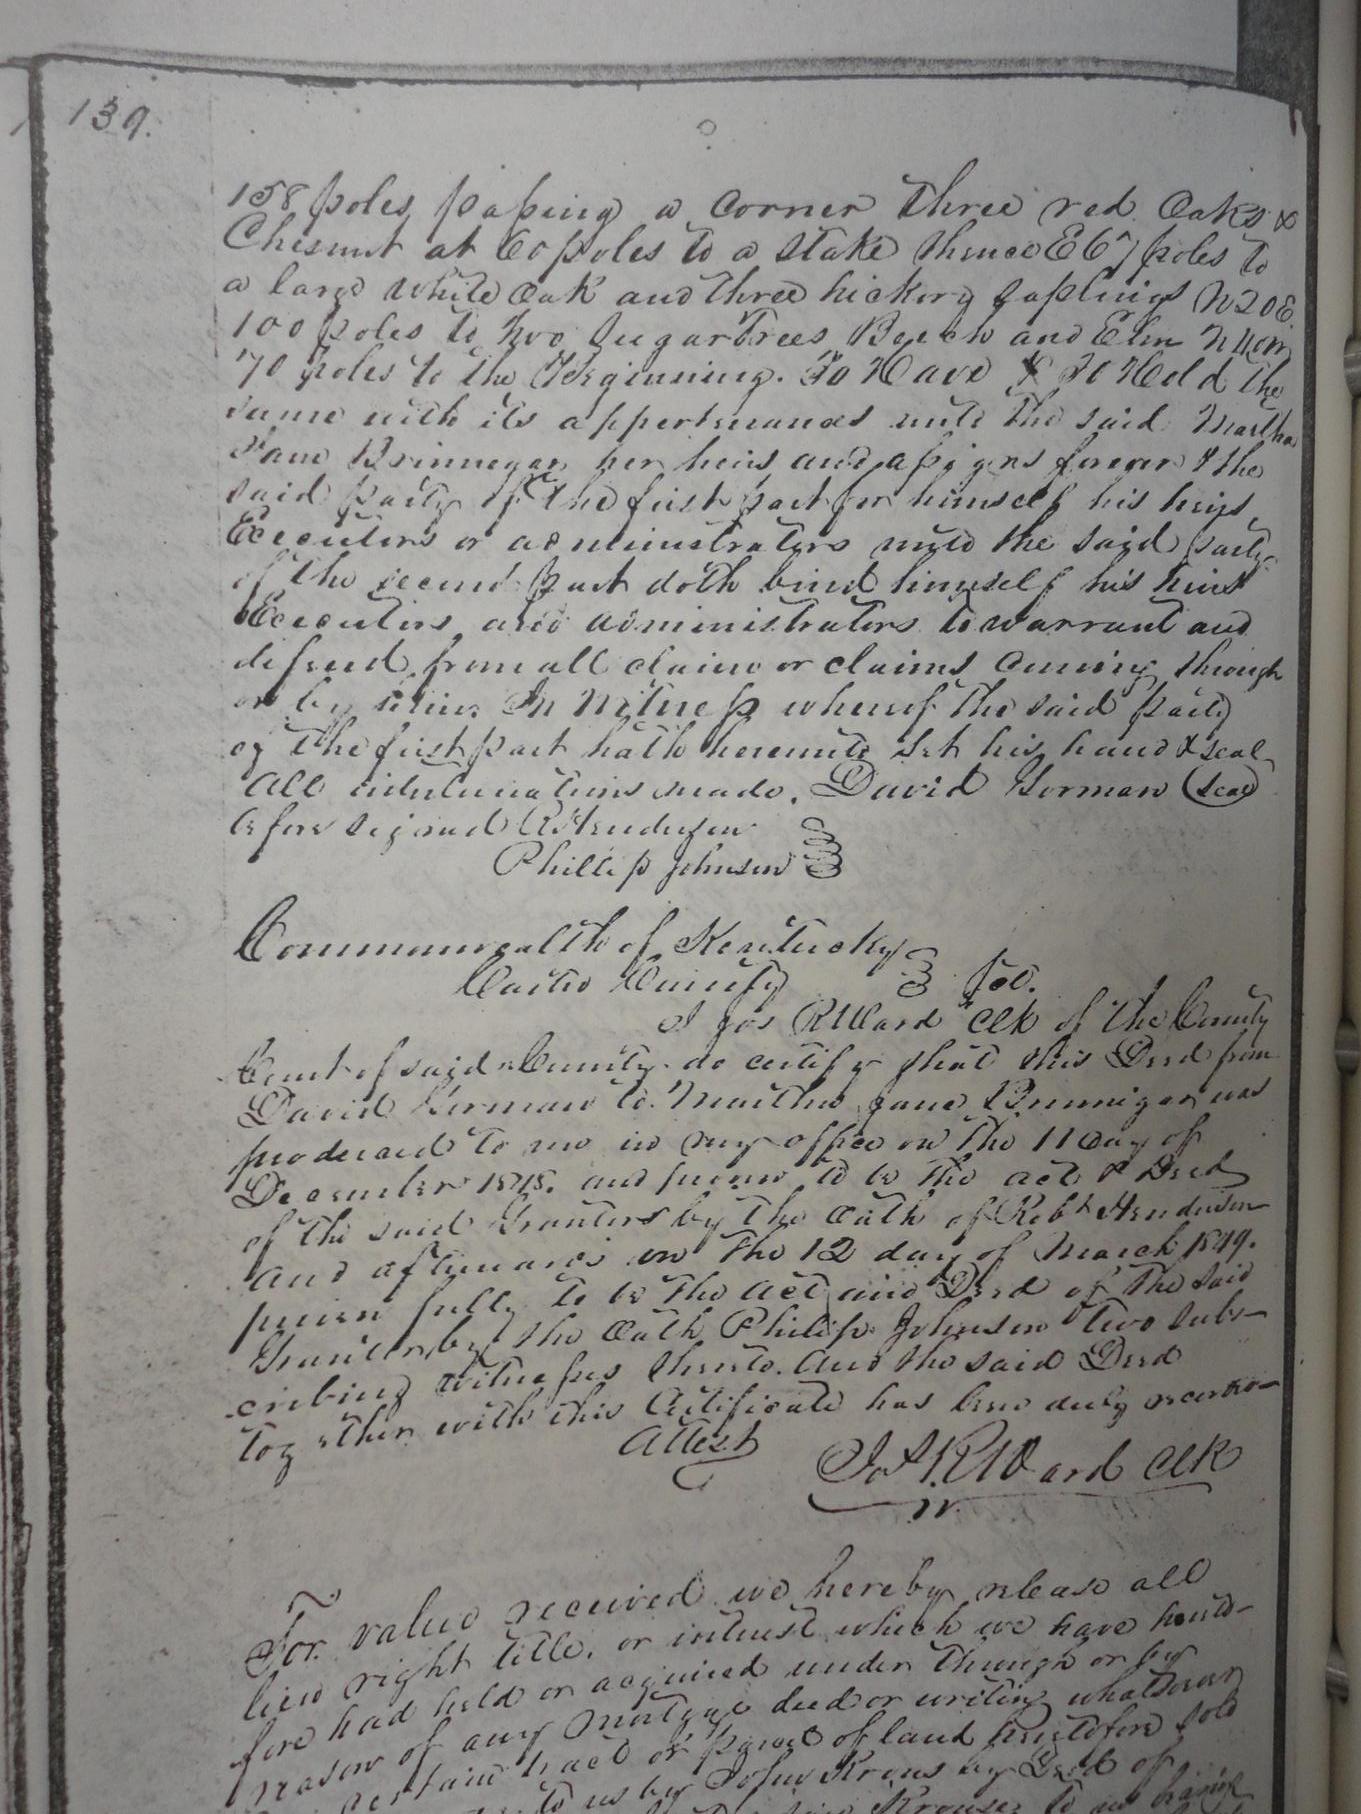 139.
158 poles passing a corner three red Oaks &
Chesnut at 60 poles to a stake thence E 67 poles to
a large white oak and three hickory saplings N20E
100 poles to two Sugar Trees Beech and Elm N40W
70 poles to the Beginning. To Have & To Hold the
same with its appertenances unto the said Martha
Jane Brinnegar her heirs and assigns forever & the
said party of the first part for himself his heirs
Executors or administrators unto the said party
of the second part doth bind himself his heirs
Executors and administrators to warrant and
defend from all claim or claims coming through
or by him. In Witness whereof the said party
of the first part hath hereunto set his hand & seal
All interlineations made. David Horman (seal)
before signed R Henderson
Phillip Johnson
Commonwealth of Kentucky
Carter County Sct.
I Jos R Ward Clk of the County
Court of said County do certify that this Deed from
David Horman to Martha Jane Brinnigar was
produced to me in my office on the 11 day of
December 1848. and proven to be the act & Deed
of the said Grantors by the Oath of Robt Henderson
and afterwards on the 12 day of March 1849.
proven fully to be the act and Deed of the said
Grantor by the Oath Philip Johnson two subs-
cribing witnesses thereto. And the said Deed
together with this Certificate has been duly
Attest Jos R Ward Clk
For value received we hereby release all
lien right title, or interest which we have hereto-
fore had held or acquired under through or by
reason of any mortgage deed or writing whatsoever
certain tract or parcel of land heretofore sold
to us by John Krous by Deed of
Krouse to